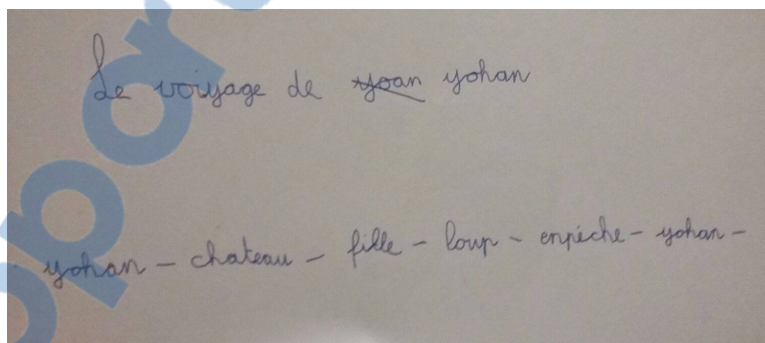 Le voiyage de yoan yohan
yohan – chateau – fille – loup – enpéche – yohan –